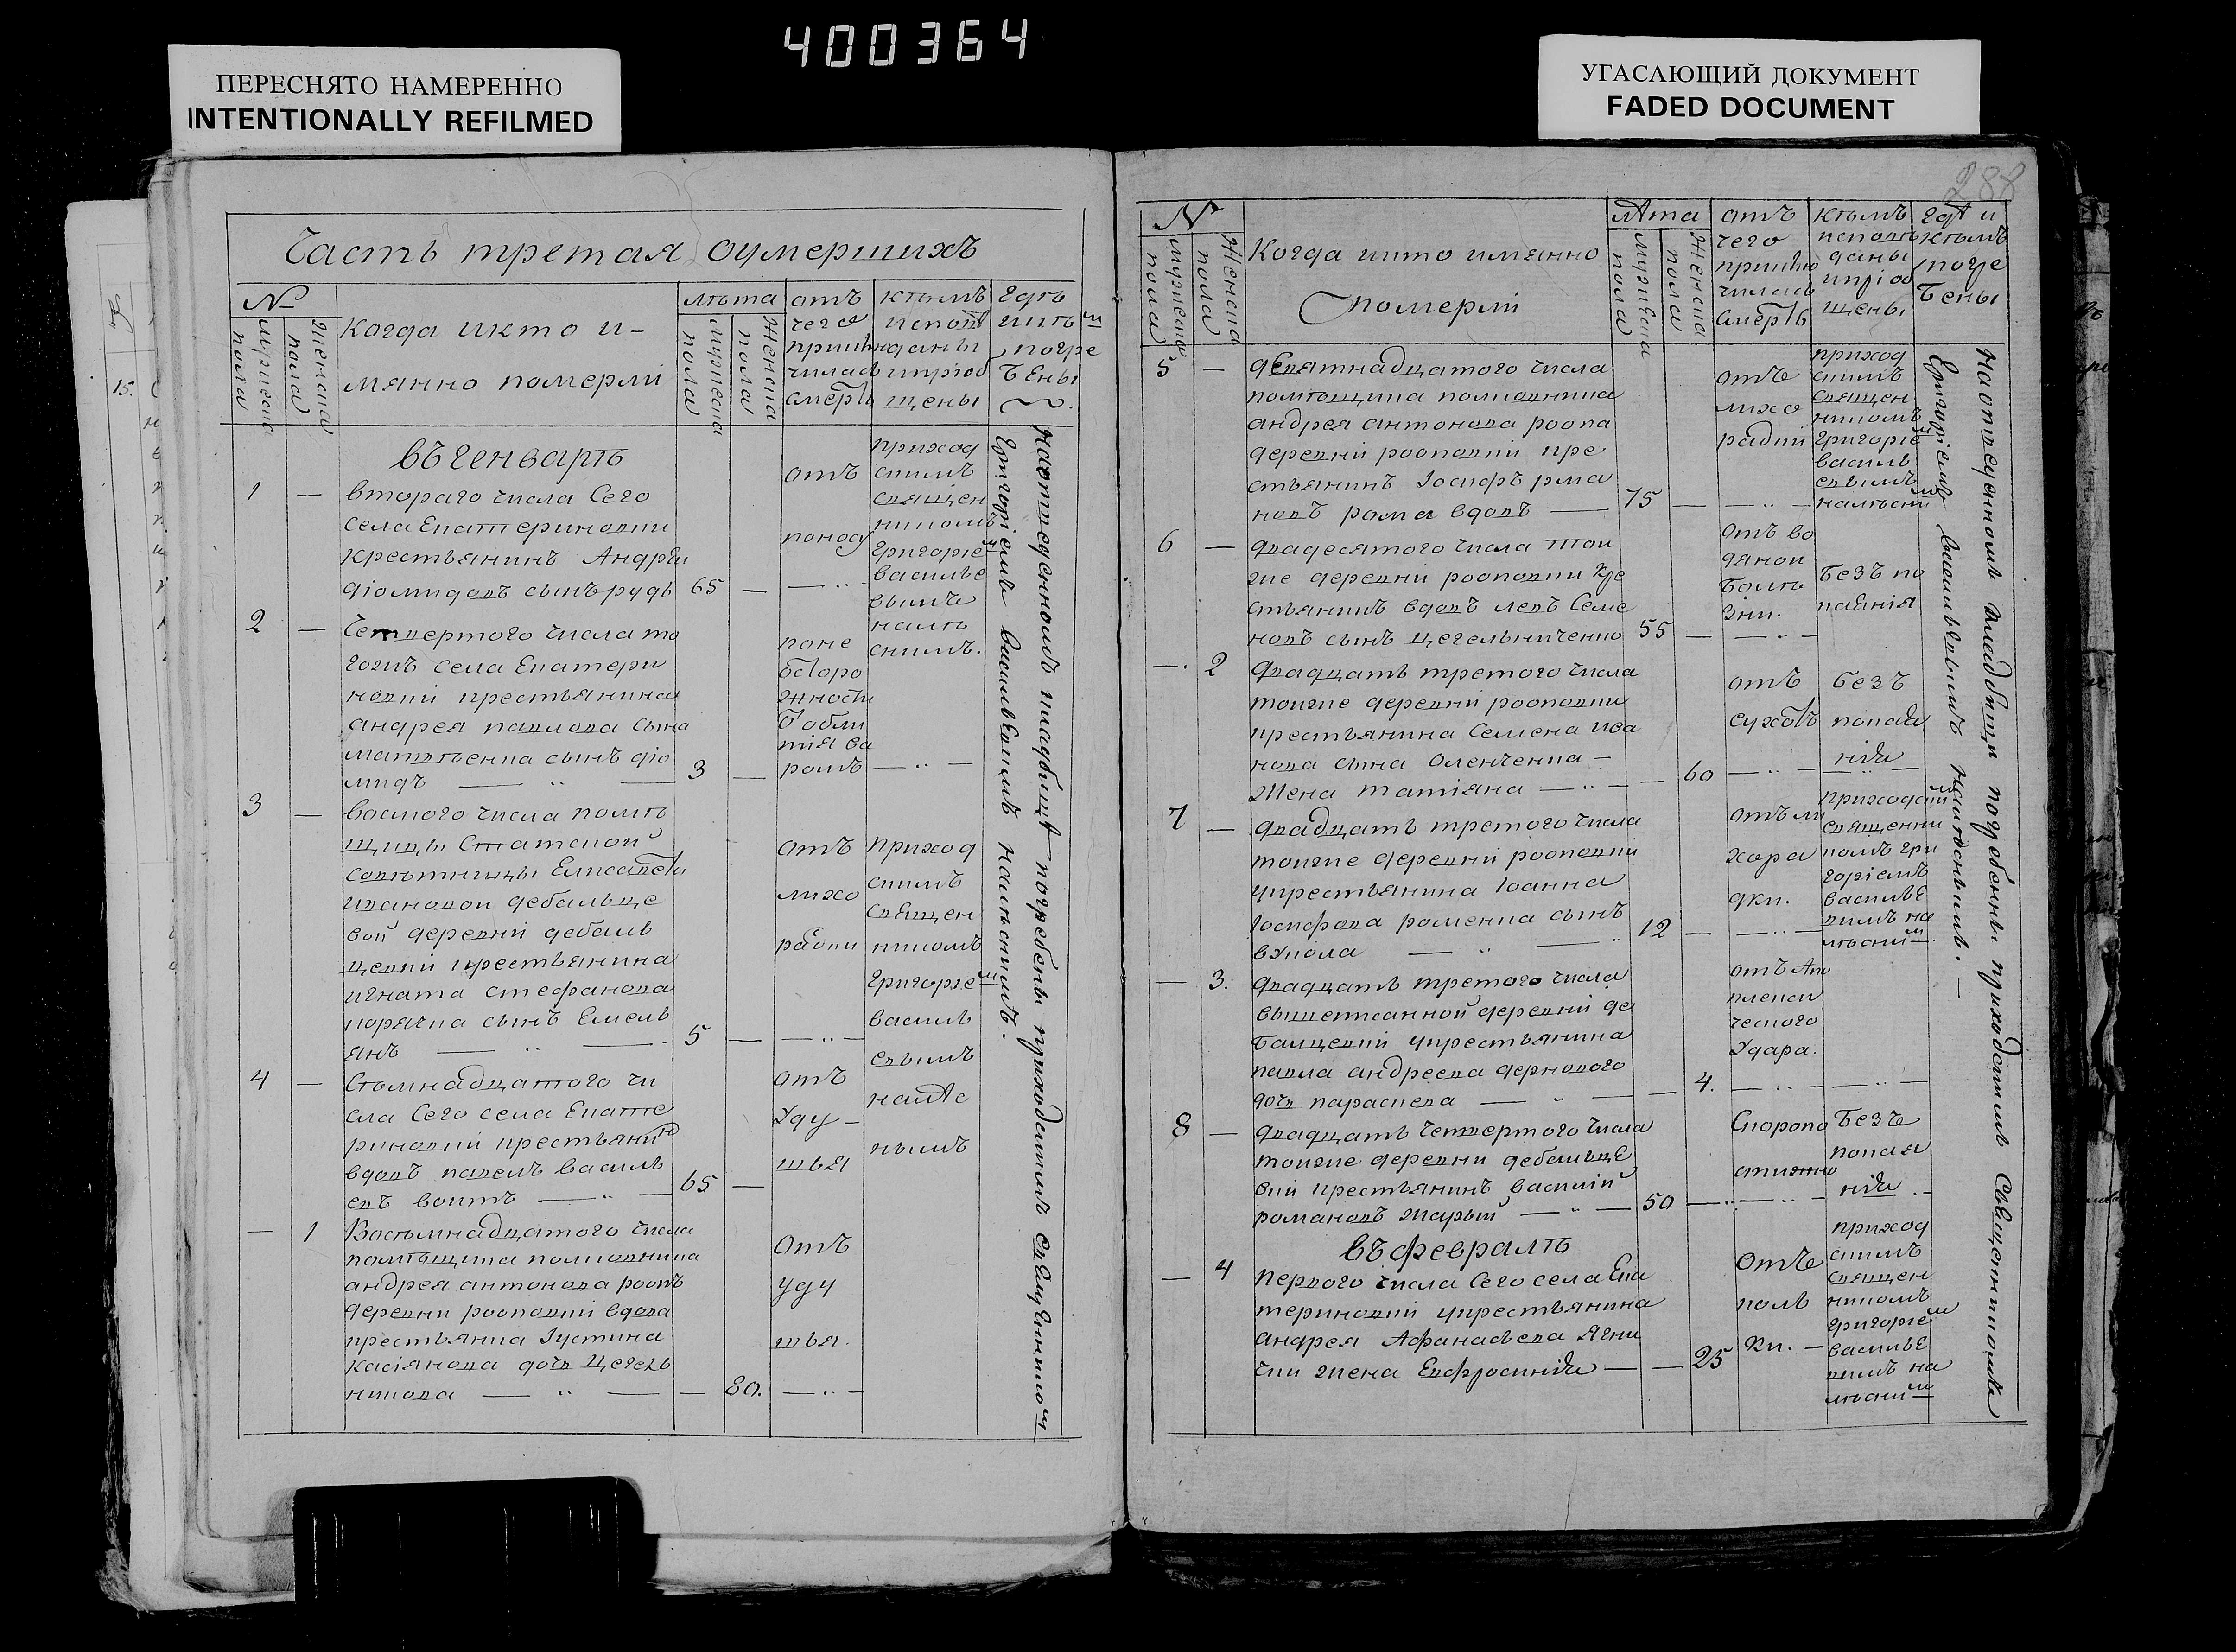 400364
ПЕРЕСНЯТО НАМЕРЕННО
INTENTIONALLY REFILMED
УГАСАЮЩИЙ ДОКУМЕНТ
FADED DOCUMENT
Часть третая оумершихъ
№
мужеска пола
Женска пола
когда икто и-
мянно помермі
лѣта
мужеска пола
Женска пола
отъ
чего
приклю
чилась
смерть
кѣмъ
исповѣ
даны
иприоб
щены
гдѣ
икѣм
погре
бены
въ генварѣ
1 —
втораго числа Сего
села Екатериновки
крестьянинъ Андрѣй
діомидовъ сынъ рудь 65 —
отъ
поносу
приход
скимъ
священ
никомъ
григорие м
василье
вымъ
налѣ
скимъ.
2 —
Четвертого числа то
гожъ села Екатери
новки крестьянина
андрея павлова сына
матвѣенка сынъ діо
мидъ 3 —
поне
осторо
жности
ѿ обли
тія ва
ромъ
3 —
восмого числа помѣ
щицы Статской
совѣтницы Елисавети
ивановои дебальце
вой деревни дебаль
цевки крестьянина
игната стефанова
корячка сынъ Емель
янъ 5 —
отъ
лихо
радки
приход
скимъ
священ
никомъ
григорие м
василь
евымъ
налѣс
кимъ
4 —
Сѣмнадцатого чи
сла Сего села Екате
риновки крестьянинъ
вдовъ павелъ василь
евъ воитъ 65 —
отъ
Уду-
шья
— 1
Восѣмнадцатого числа
помѣщика полковника
андрея антонова роопа
деревни рооповки вдова
крестьянка Іустина
касіянова дочь Цегель
никова — 80.
отъ
уду
шья.
наотведенномъ кладбищѣ погребены приходскимъ священником
григоріемъ васильевымъ налѣскимъ.
288
№
мужеска пола
Женска пола
Когда икто имянно
помермі
лѣта
мужеска пола
Женска пола
отъ
чего
приклю
чилась
смерть
кѣмъ
исповѣ
даны
иприоб
щены
гдѣ и
кѣмъ
погре
бены
5 —
девятнадцатого числа
помѣщика полковника
андрея антонова роопа
деревни рооповки кре
стьянинъ Іосифъ рма
новъ рома вдовъ 75 —
отъ
лихо
радки
приход
скимъ
священ
никомъ
григорие м
василь
евымъ
налѣски м
6 —
двадесятого числа тои
же деревни рооповки кре
стьянинъ вдовъ левъ Семе
новъ сынъ цегельниченко 55 —
отъ во
дяной
болѣ
зни.
безъ по
каянія
— 2
двадцать третого числа
тоиже деревни рооповки
крестьянина Семена ива
нова сына оленченка —
Жена татіяна — 60
отъ
сухотъ
безъ
покая
нія
7 —
двадцать третого числа
тоиже деревни рооповки
укрестьянина Іоанна
Іосифова роменка сынъ
вукола 12 —
отъ ли
хора
дки.
приходски м
священни
комъ гри
горіемъ
василье
вимъ на
лѣски м
— 3.
двадцать третого числа
вышеписанной деревни де
балцевки укрестьянина
павла андреева дернового
дочь параскева — 4.
отъ Апо
плекси
ческого
Удара.
8 —
двадцать четвертого числа
тоиже деревни дебальце
вки крестьянинъ василій
романовъ жарый 50 —
Скоропо
стижно
безъ
покая
нія
въ февралѣ
— 4
первого числа Сего села Ека
териновки укрестьянина
андрея Афанасьева Ягни
чки жена Евфросинія — 25
отъ
коль
ки.
приход
скимъ
священ
никомъ
григорие м
василье
вимъ на
лѣски м
наотведенномъ кледбищи погребены приходскимъ Священникомъ
григоріемъ васильевымъ налѣскимъ. —